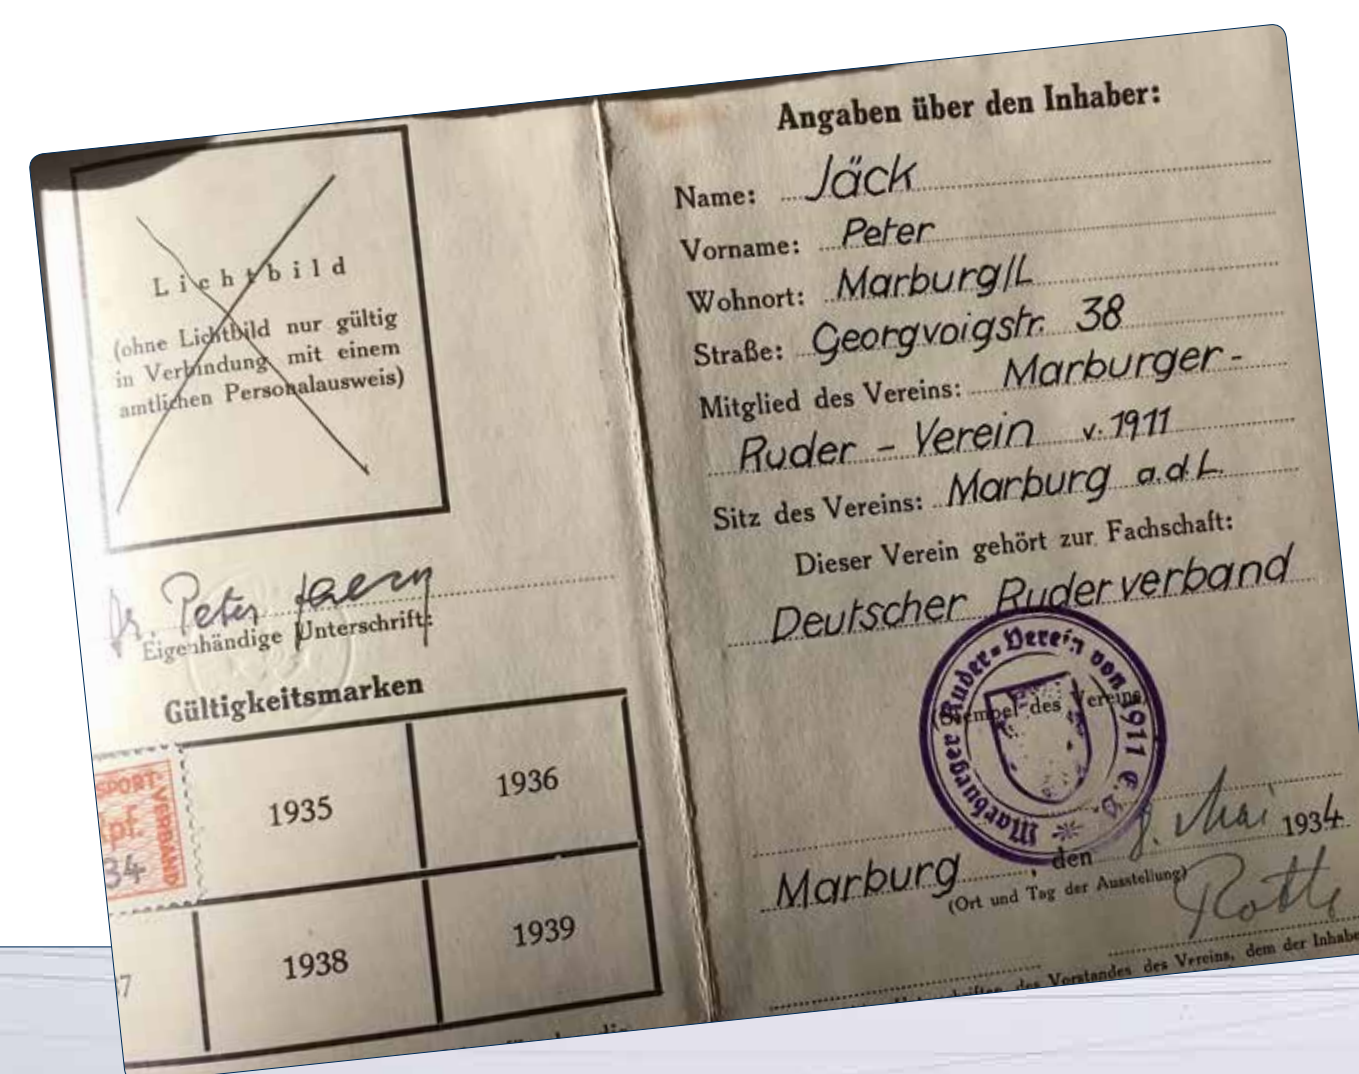 Lichtbild
(ohne Lichtbild nur gültig
in Verbindung mit einem
amtlichen Personalausweis)
Dr. Peter
Eigenhändige Unterschrift:
Gültigkeitsmarken
SPORT-VERBAND
pf.
34
1935
1936
7
1938
1939
Angaben über den Inhaber:
Name: Jäck
Vorname: Peter
Wohnort: Marburg/L
Straße: Georgvoigstr. 38
Mitglied des Vereins: Marburger-
Ruder - Verein v. 1911
Sitz des Vereins: Marburg a.d.L.
Dieser Verein gehört zur Fachschaft:
Deutscher Ruderverband
Marburger Ruder-Verein von 1911 E.V.
(Stempel des Vereins)
Marburg, den 8. Mai 1934
(Ort und Tag der Ausstellung)
des Vorstandes des Vereins, dem der Inhabe